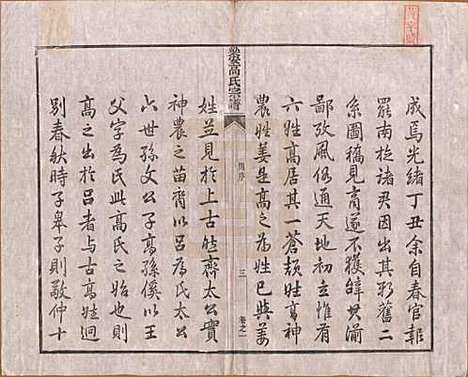 成焉光緒丁丑余自春官報
罷南旋諸君因出其形舊二
系圖稿見商遂不獲辭其淪
鄙攷風俗通天地初立惟有
六姓髙居其一蒼頡姓髙神
農姓姜是髙之為姓已與姜
梁安高氏宗譜
序
三
卷之一
姓並見於上古時齊太公實
神農之苗裔以呂為氏太公
六世孫文公子髙孫傒以王
父字為氏此髙氏之始也則
髙之出於呂者与古髙姓迥
別春秋時子皋子則敬仲十